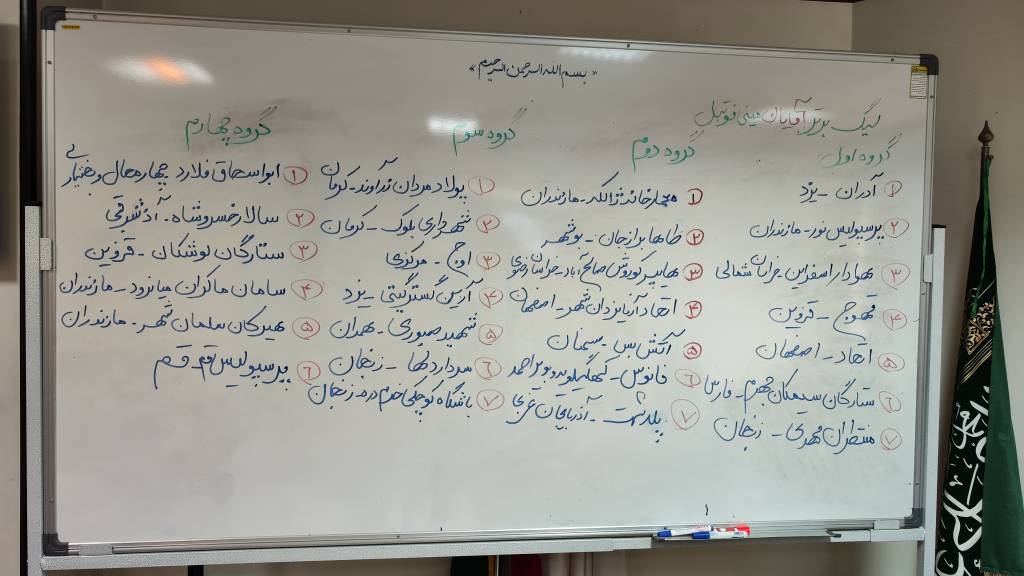 «بسم الله الرحمن الرحیم»
لیگ برتر آقایان مینی فوتبل
گروه اول
۱ آدران - یزد
۲ پرسپولیس نور - مازندران
۳ هوادار اسفراین - خراسان شمالی
۴ قهوج - قزوین
۵ اتحاد - اصفهان
۶ ستارگان سیمکان جهرم - فارس
۷ منتظران مهدی - زنجان
گروه دوم
۱ - مازندران
۲ طاها برازجان - بوشهر
۳ هایپر کوروش صالح آباد - خراسان رضوی
۴ اتحاد آریا یزدانشهر - اصفهان
۵ آتش بس - سمنان
۶ فانوس - کهگیلویه و بویراحمد
۷ پلدشت - آذربایجان غربی
گروه سوم
۱ پولاد مردان زرآوند - کرمان
۲ شهرداری بلوک - کرمان
۳ اوج - مرکزی
۴ آرمین گستر گیتی - یزد
۵ شهید صبوری - همدان
۶ سردار دلها - زنجان
۷ باشگاه کوچکی خرمدره - زنجان
گروه چهارم
۱ ابواسحاق فلارد چهارمحال و بختیاری
۲ سالار خسروشاه - آذ شرقی
۳ ستارگان لوشکان - قزوین
۴ سامان ماکران میانرود - مازندران
۵ هیرکان سلمان شهر - مازندران
۶ پرسپولیس قم - قم